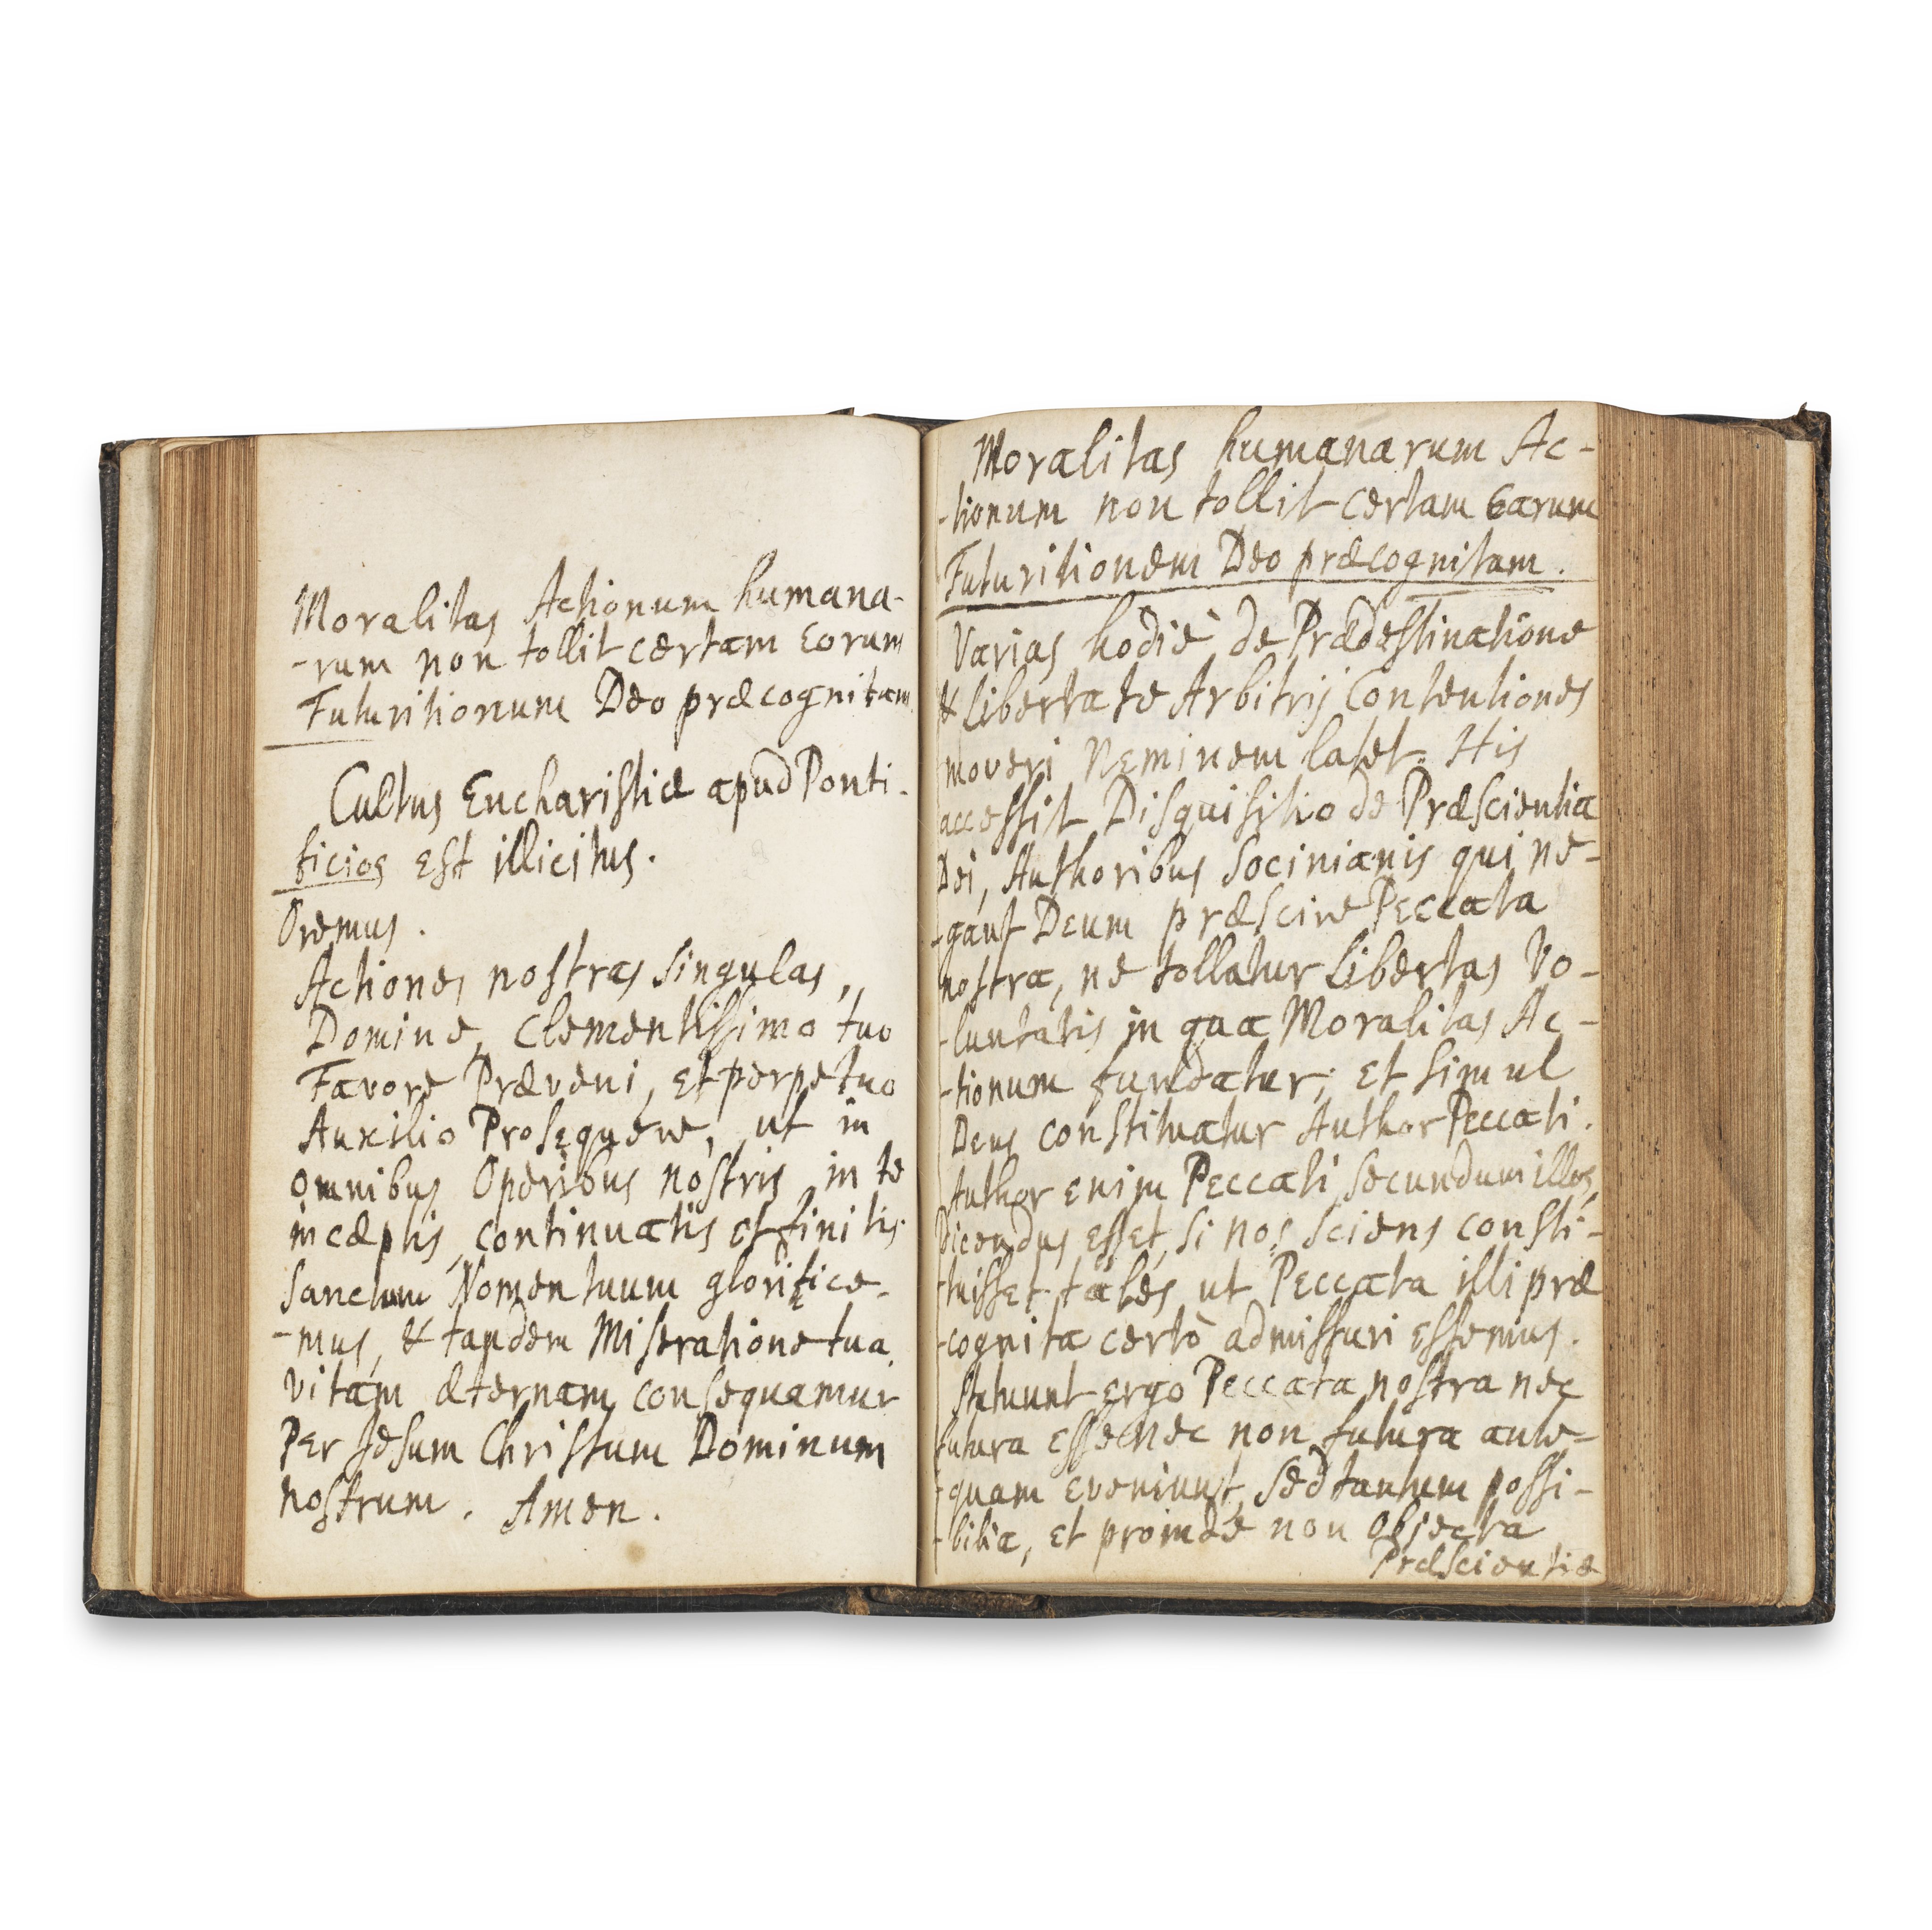 Moralitas Actionum humana-
-rum non tollit certam Eorum
Futuritionum Deo præcognitam
Cultus Eucharistiæ apud Ponti-
ficios Est illicitus.
Oremus.
Actiones nostras singulas,
Domine, Clementissimo tuo
Favore Præveni, et perpetuo
Auxilio Prosequere, ut in
omnibus Operibus nostris, in te
incæptis, continuatis et finitis
Sanctum Nomen tuum glorifice-
-mus, & tandem Miseratione tua
vitam æternam consequamur
Per Jesum Christum Dominum
nostrum. Amen.
Moralitas humanarum Ac-
-tionum non tollit certam Earum
Futuritionem Deo præcognitam.
Varias hodiè de Prædestinatione
& Libertate Arbitrij Contentiones
moveri Neminem latet. His
accessit Disquisitio de Præscientia
Dei, Authoribus Socinianis qui ne-
-gant Deum præscire Peccata
nostra, ne tollatur Libertas Vo-
-luntatis in qua Moralitas Ac-
-tionum fundatur; Et simul
Deus constituatur Author Peccati.
Author enim Peccati secundum illos,
Dicendus esset, si nos sciens consti-
-tuisset tales ut Peccata illi præ
-cognita certò admissuri essemus.
Statuunt ergo Peccata nostra nec
futura esse nec non futura ante-
-quam eveniunt, sed tantum possi-
-bilia, et proinde non objecta
Præscientiæ